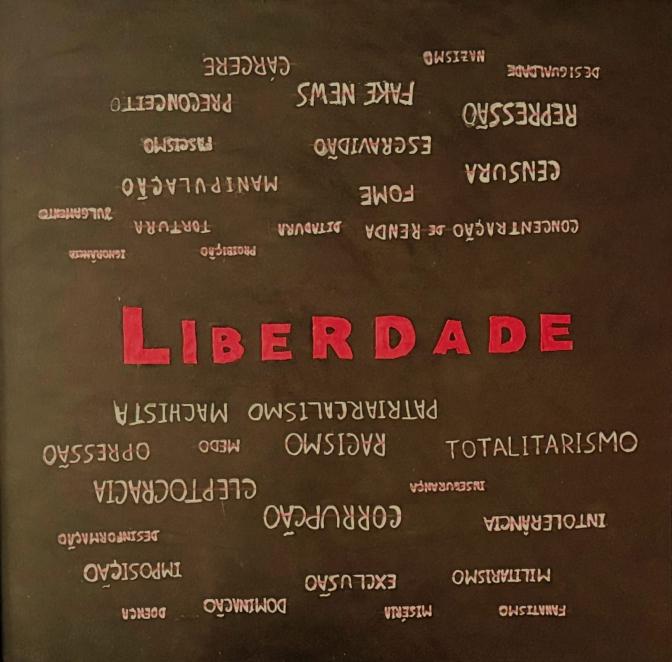 CÁRCERE NAZISMO DESIGUALDADE
PRECONCEITO FAKE NEWS REPRESSÃO
FASCISMO ESCRAVIDÃO CENSURA
MANIPULAÇÃO FOME
JULGAMENTO TORTURA DITADURA CONCENTRAÇÃO DE RENDA
IGNORÂNCIA PROIBIÇÃO
LIBERDADE
PATRIARCALISMO MACHISTA
OPRESSÃO MEDO RACISMO TOTALITARISMO
CLEPTOCRACIA INSEGURANÇA
CORRUPÇÃO INTOLERÂNCIA
DESINFORMAÇÃO
IMPOSIÇÃO EXCLUSÃO MILITARISMO
DOENÇA DOMINAÇÃO MISÉRIA FANATISMO